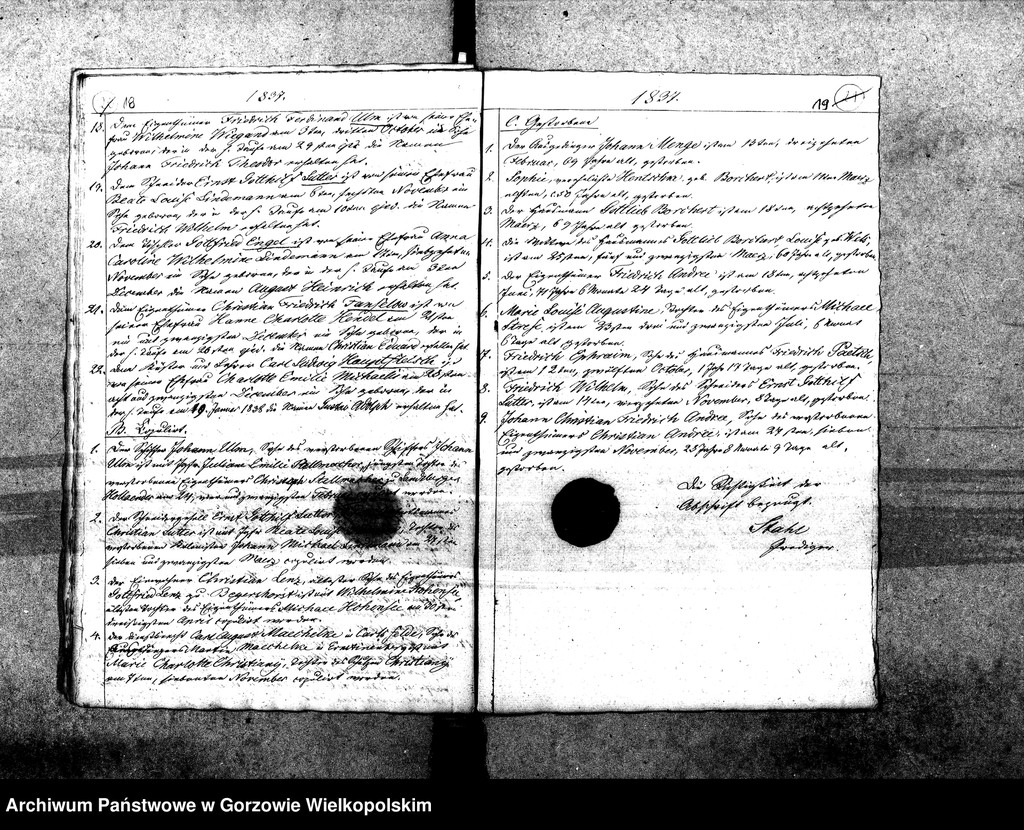 18
1837.
18. Dem Eigenthümer Friedrich Ferdinand Ulm ist von seiner Ehe-
frau Wilhelmine Wiegand am 3ten, dritten October ein Sohn
geboren, der in der h. Taufe am 29sten ejd. die Namen
Johann Friedrich Theodor erhalten hat.
19. Dem Schneider Ernst Gotthilf Lutter ist von seiner Ehefrau
Beate Louise Lindemann am 6ten, sechsten November ein
Sohn geboren, der in der h. Taufe am ejd. die Namen
Friedrich Wilhelm erhalten hat.
20. Dem Gottfried Engel ist von seiner Ehefrau Anna
Caroline Wilhelmine Lindemann am 17ten, siebzehnten
November ein Sohn geboren, der in der h. Taufe am 3ten
December die Namen August Heinrich erhalten hat.
21. Dem Eigenthümer Christian Friedrich Fanselko ist von
seiner Ehefrau Hanne Charlotte Hendel am 21sten
ein und zwanzigsten December ein Sohn geboren, der in
der h. Taufe am 26sten ejd. die Namen Christian Eduard erhalten hat.
22. Dem Küster und Lehrer Carl Ludwig Hauptfleisch ist
von seiner Ehefrau Charlotte Emilie Michaelis am 28sten
acht und zwanzigsten December ein Sohn geboren, der in
der h. Taufe am 19. Januar 1838 die Namen Gustav Adolph erhalten hat.
B. Copulirt.
1. Der Schiffer Johann Ulm, Sohn des verstorbenen Schiffers Johann
Ulm ist mit Jgfr. Juliane Emilie Stellmacher, jüngsten Tochter des
verstorbenen Eigenthümers Christoph Stellmacher zu Landsberger
Hollaender am 24, vier und zwanzigsten worden.
2. Der Schneidergeselle Ernst Gotthilf Lutter
Christian Lutter ist mit Jgfr. Beate Louise Tochter des
verstorbenen Kolonisten Johann Michael Lindemann am
sieben und zwanzigsten März copulirt worden.
3. Der Einwohner Christian Lenz, ältester Sohn des Eigenthümers
Gottfried Lenz zu Beyershorst ist mit Wilhelmine Hohensee
ältesten Tochter des Eigenthümers Michael Hohensee am 30sten
dreißigsten April copulirt worden.
4. Der Dienstknecht Carl August Maechelke, Sohn des
Martin Maechelke ist mit
Marie Charlotte Christiany, Tochter des Christiany
am 7ten, siebenten November copulirt worden.
1837.
19
C. Gestorbene
1. Der Ausgedinger Johann Menge ist am 13ten, dreizehnten
Februar, 69 Jahre alt, gestorben.
2. Sophie, verehelichte Hentschke, geb. Borchert, ist am 11ten März
elften, 50 Jahre alt, gestorben.
3. Der Hausmann Gottlieb Borchert ist am 18ten, achtzehnten
März, 69 Jahre alt gestorben.
4. Die Wittwe des Hausmannes Gottlieb Borchert Louise, geb.
ist am 25sten, fünf und zwanzigsten März, 60 Jahre alt, gestorben.
5. Der Eigenthümer Friedrich Andree ist am 18ten, achtzehnten
Juni, 41 Jahre 6 Monate 24 Tage alt, gestorben.
6. Marie Louise Augustine, Tochter des Eigenthümers Michael
ist am 23sten drei und zwanzigsten Juli,
6 Tage alt gestorben.
7. Friedrich Ephraim, Sohn des Hausmannes Friedrich Paetzel
ist am 12ten, zwölften October, 1 Jahr 17 Tage alt, gestorben.
8. Friedrich Wilhelm, Sohn des Schneiders Ernst Gotthilf
Lutter, ist am 14ten, vierzehnten November, 8 Tage alt, gestorben.
9. Johann Christian Friedrich Andree, Sohn des verstorbenen
Eigenthümers Christian Andree ist am 27sten, sieben
und zwanzigsten November, 23 Jahre 8 Monate 9 Tage alt,
gestorben.
Die Richtigkeit der
Abschrift bezeugt.
Stahl
Prediger.
Archiwum Państwowe w Gorzowie Wielkopolskim